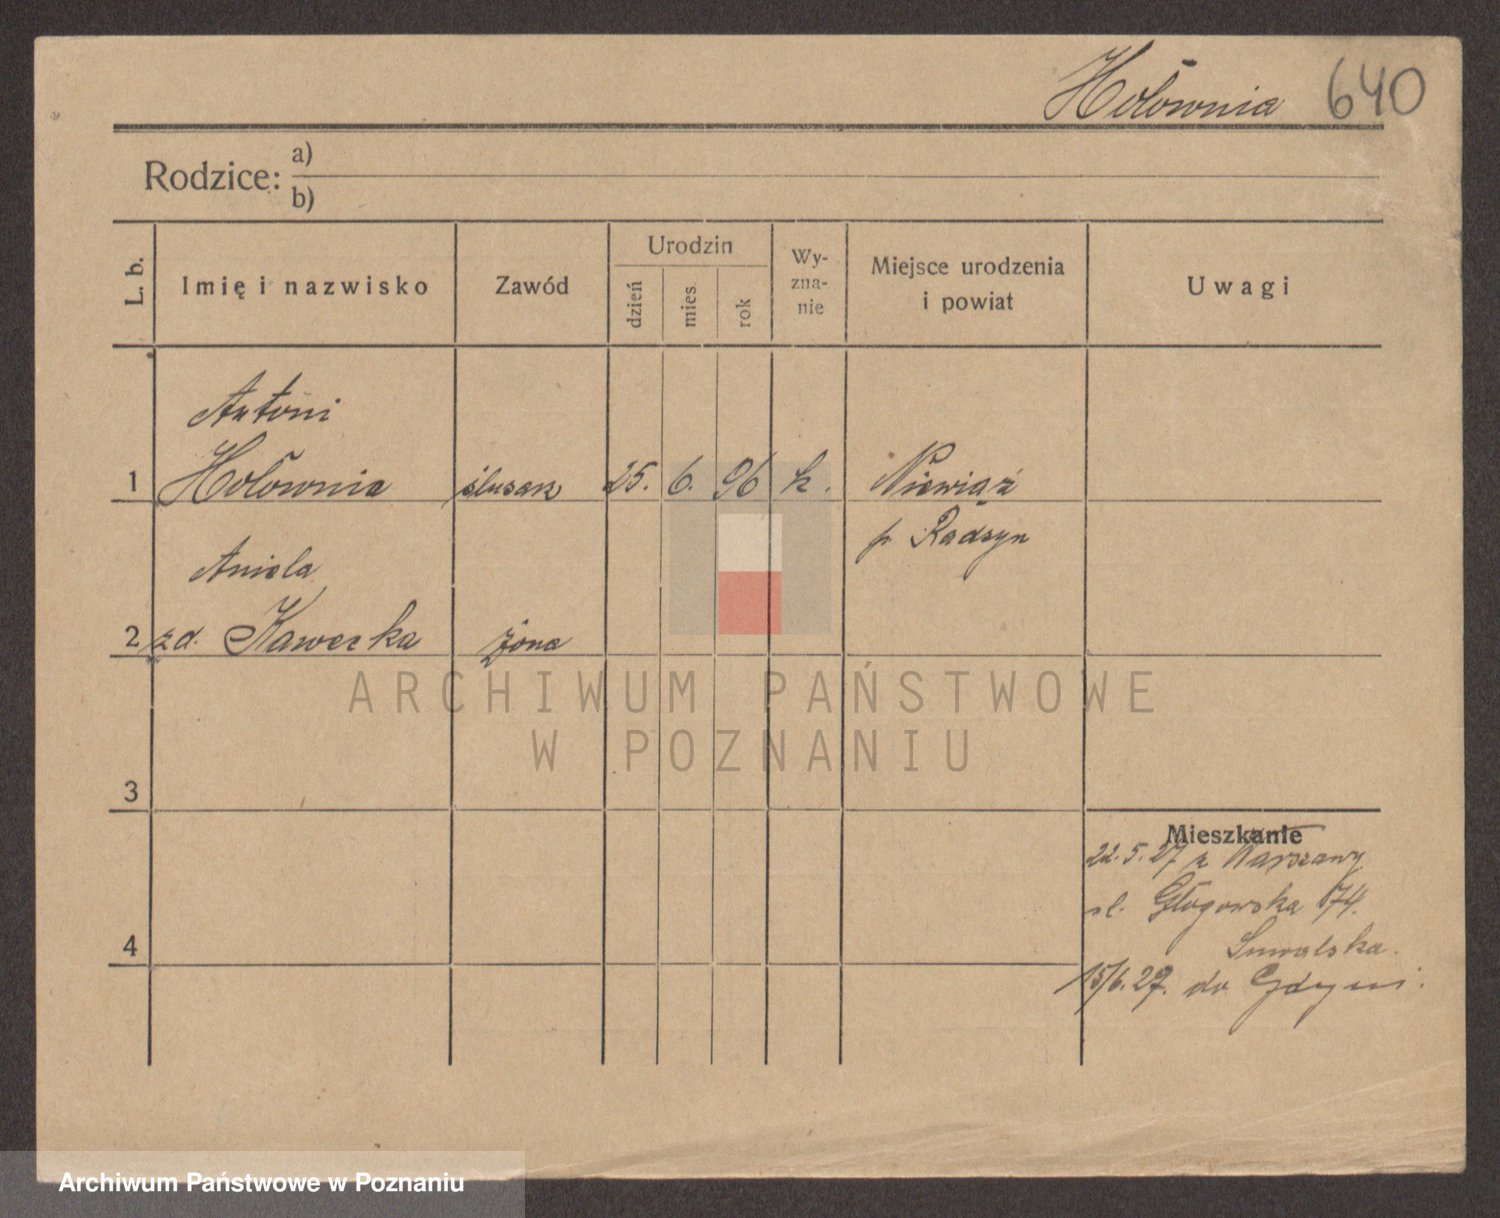 Hołownia 640
Rodzice: a)
b)
L. b.
Imię i nazwisko
Zawód
Urodzin
dzień
mies
rok
Wy-
zna-
nie
Miejsce urodzenia
i powiat
Uwagi
Antoni
1 Hołownia ślusarz 25. 6. 96 k. Niewiąż
p. Radzyn
Aniela
2 zd. Kawecka żona
3
4
Mieszkanie
22.5.27 z Warszawy
ul. Głogowska 174.
Suwalska.
15/6.27. do Gdyni.
ARCHIWUM PAŃSTWOWE
W POZNANIU
Archiwum Państwowe w Poznaniu